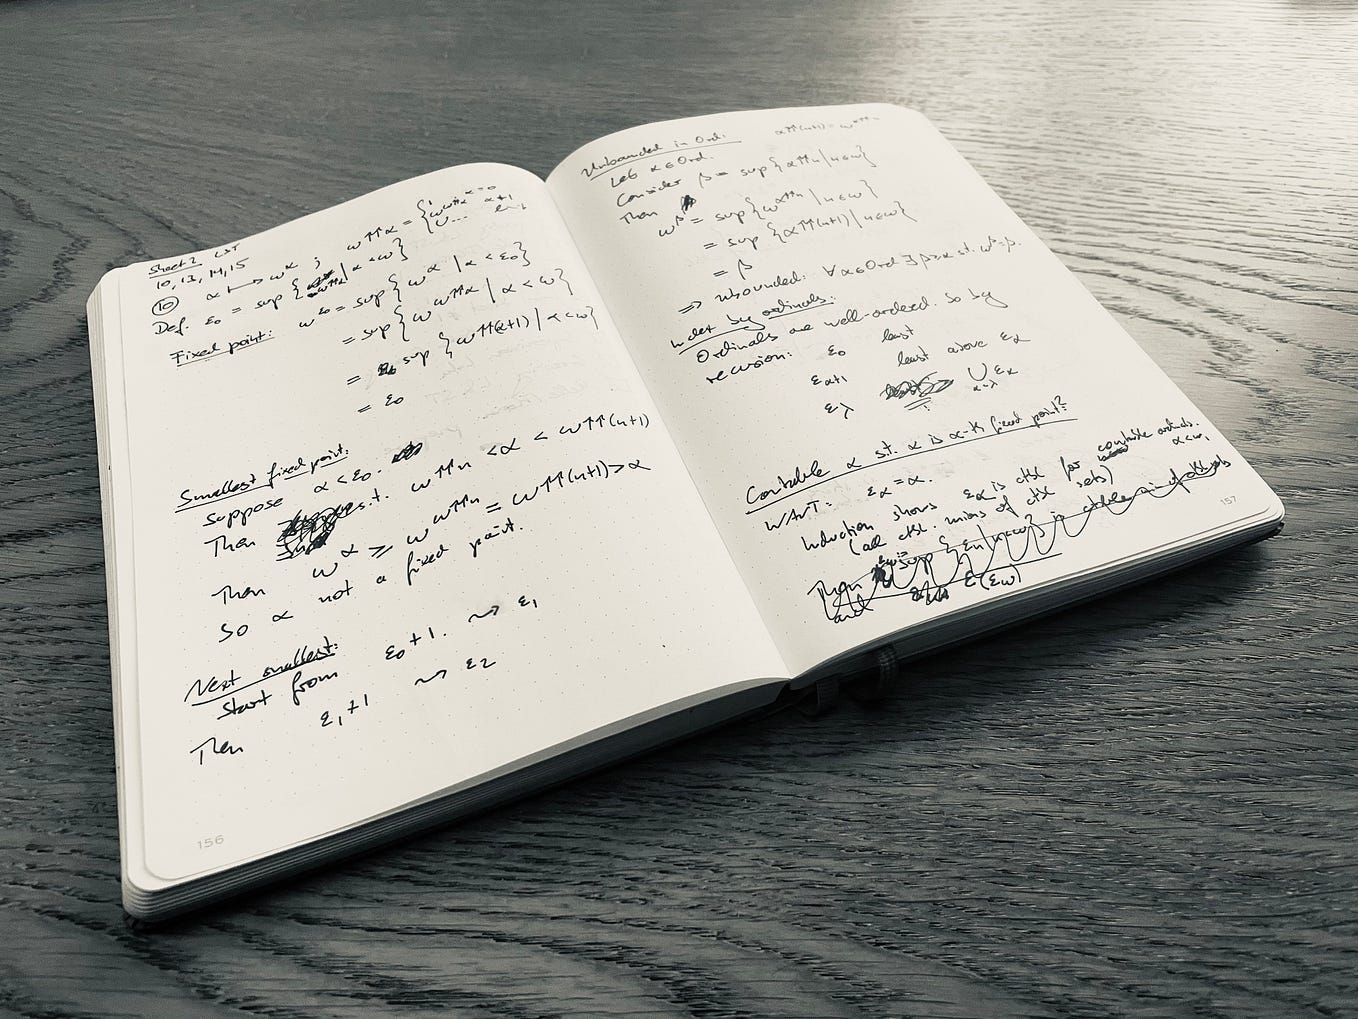 Sheet 2 LST
10, 13, 14, 15
⑩ α ↦ ω^α ; ω↑↑α = { 1 α=0
ω^{ω↑↑α} α+1
∪...
Def. ε₀ = sup { ω↑↑α | α < ω }
Fixed point: ω^{ε₀} = sup { ω^α | α < ε₀ }
= sup { ω^{ω↑↑α} | α < ω }
= sup { ω↑↑(α+1) | α < ω }
= ε₀
Smallest fixed point:
Suppose α < ε₀.
Then s.t. ω↑↑n < α < ω↑↑(n+1)
Then ω^α ≥ ω^{ω↑↑n} = ω↑↑(n+1) > α
So α not a fixed point.
Next smallest:
start from ε₀+1. ⇝ ε₁
Then ε₁+1 ⇝ ε₂
156
Unbounded in Ord: α↑↑(n+1) = ω^{α↑↑n}
Let α ∈ Ord.
Consider β = sup { α↑↑n | n∈ω }
Then
ω^β = sup { ω^{α↑↑n} | n∈ω }
= sup { α↑↑(n+1) | n∈ω }
= β
⇒ unbounded: ∀α∈Ord ∃β>α s.t. ω^β = β.
Index by ordinals:
Ordinals are well-ordered. So by
recursion: ε₀ least
ε_{α+1} least above ε_α
ε_λ ∪_{α<λ} ε_α
Countable α s.t. α is α-th fixed point?
WANT: ε_α = α.
Induction shows ε_α is ctbl for countable ordinals.
α<ω₁
(all ctbl. unions of ctbl sets)
Then sup { ε_n | n∈ω } is
and ε(ε_ω)
157